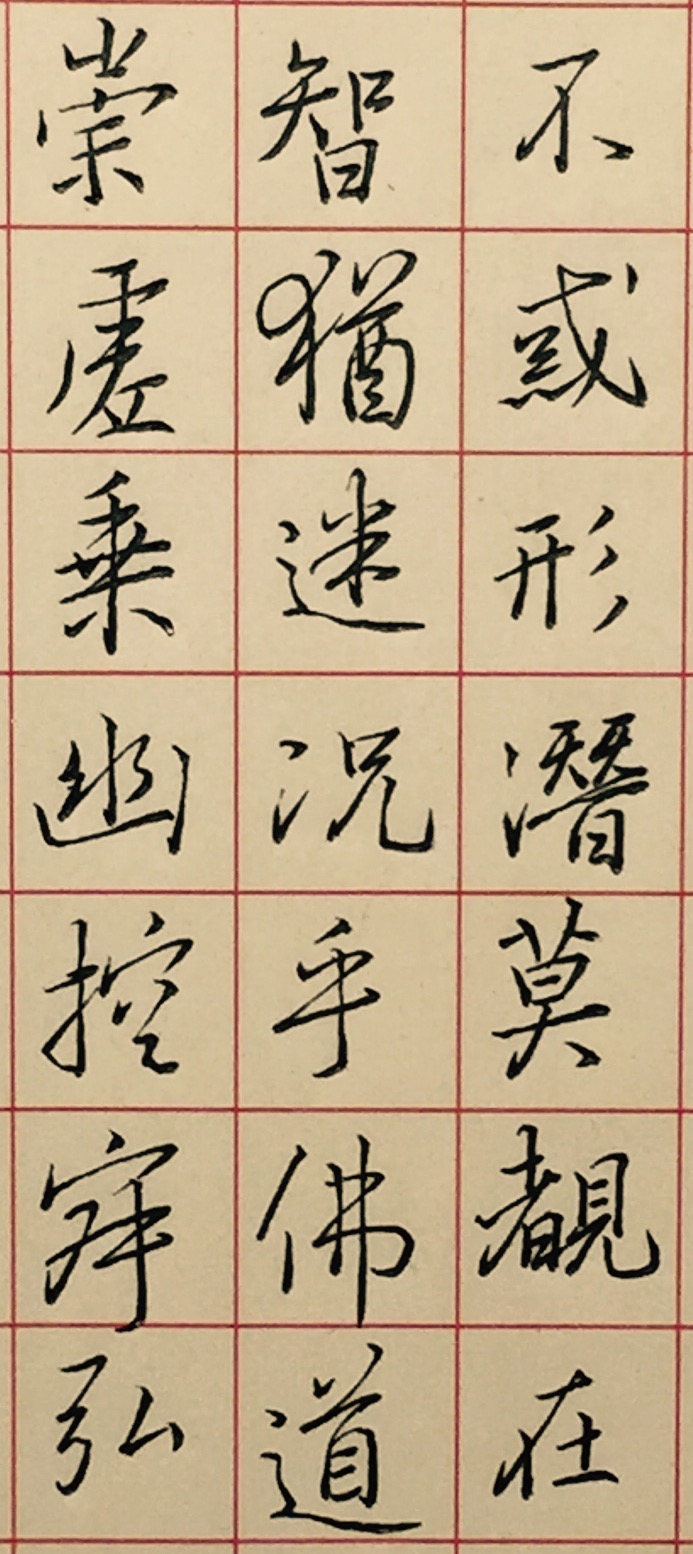 不惑形潛莫覩在
智猶迷况乎佛道
崇虛乗幽控寂弘